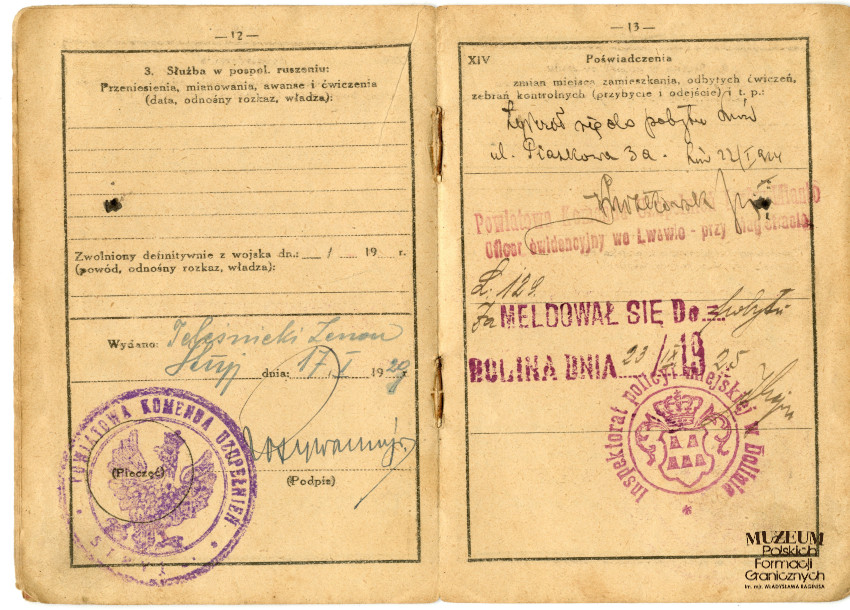 — 12 —
3. Służba w pospol. ruszeniu:
Przeniesienia, mianowania, awanse i ćwiczenia
(data, odnośny rozkaz, władza):
Zwolniony definitywnie z wojska dn.: / 19 r.
(powód, odnośny rozkaz, władza):
Wydano: Teleśnicki Zenon
Stryj dnia: 17/I 1929
(Pieczęć)
(Podpis)
POWIATOWA KOMENDA UZUPEŁNIEŃ
* STRYJ *
— 13 —
XIV Poświadczenia
zmian miejsca zamieszkania, odbytych ćwiczeń,
zebrań kontrolnych (przybycie i odejście) i t. p.:
się do pobytu
ul. Piaskowa 3a. 22/I
Powiatowa
Oficer ewidencyjny we Lwowie - przy
L. 129.
Za MELDOWAŁ SIĘ Do pobytu
DOLINA DNIA 23/ 19 25
Inspektorat policji miejskiej w Dolinie
*
MUZEUM
Polskich
Formacji
Granicznych
im. mjr. WŁADYSŁAWA RAGINISA